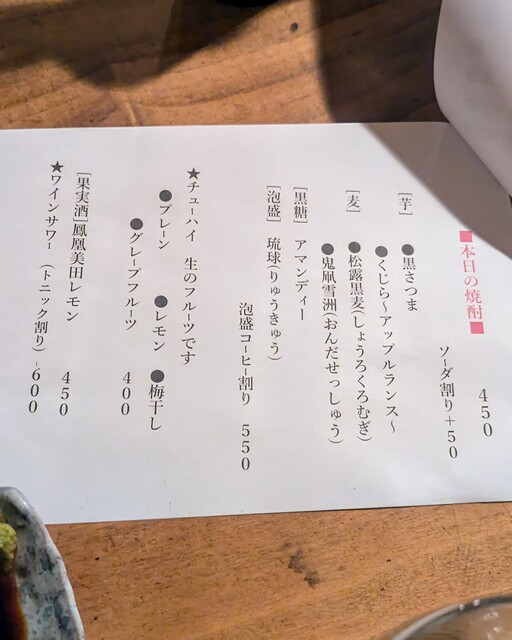 ■本日の焼酎■
450
ソーダ割り＋50
[芋]
●黒さつま
●くじら～アップルランス～
[麦]
●松露黒麦(しょうろくろむぎ)
●鬼凧雪洲(おんだせっしゅう)
[黒糖] アマンディー
[泡盛] 琉球(りゅうきゅう)
泡盛コーヒー割り 550
★チューハイ 生のフルーツです
●プレーン ●レモン ●梅干し
●グレープフルーツ 400
[果実酒]鳳凰美田レモン 450
★ワインサワー (トニック割り) -600